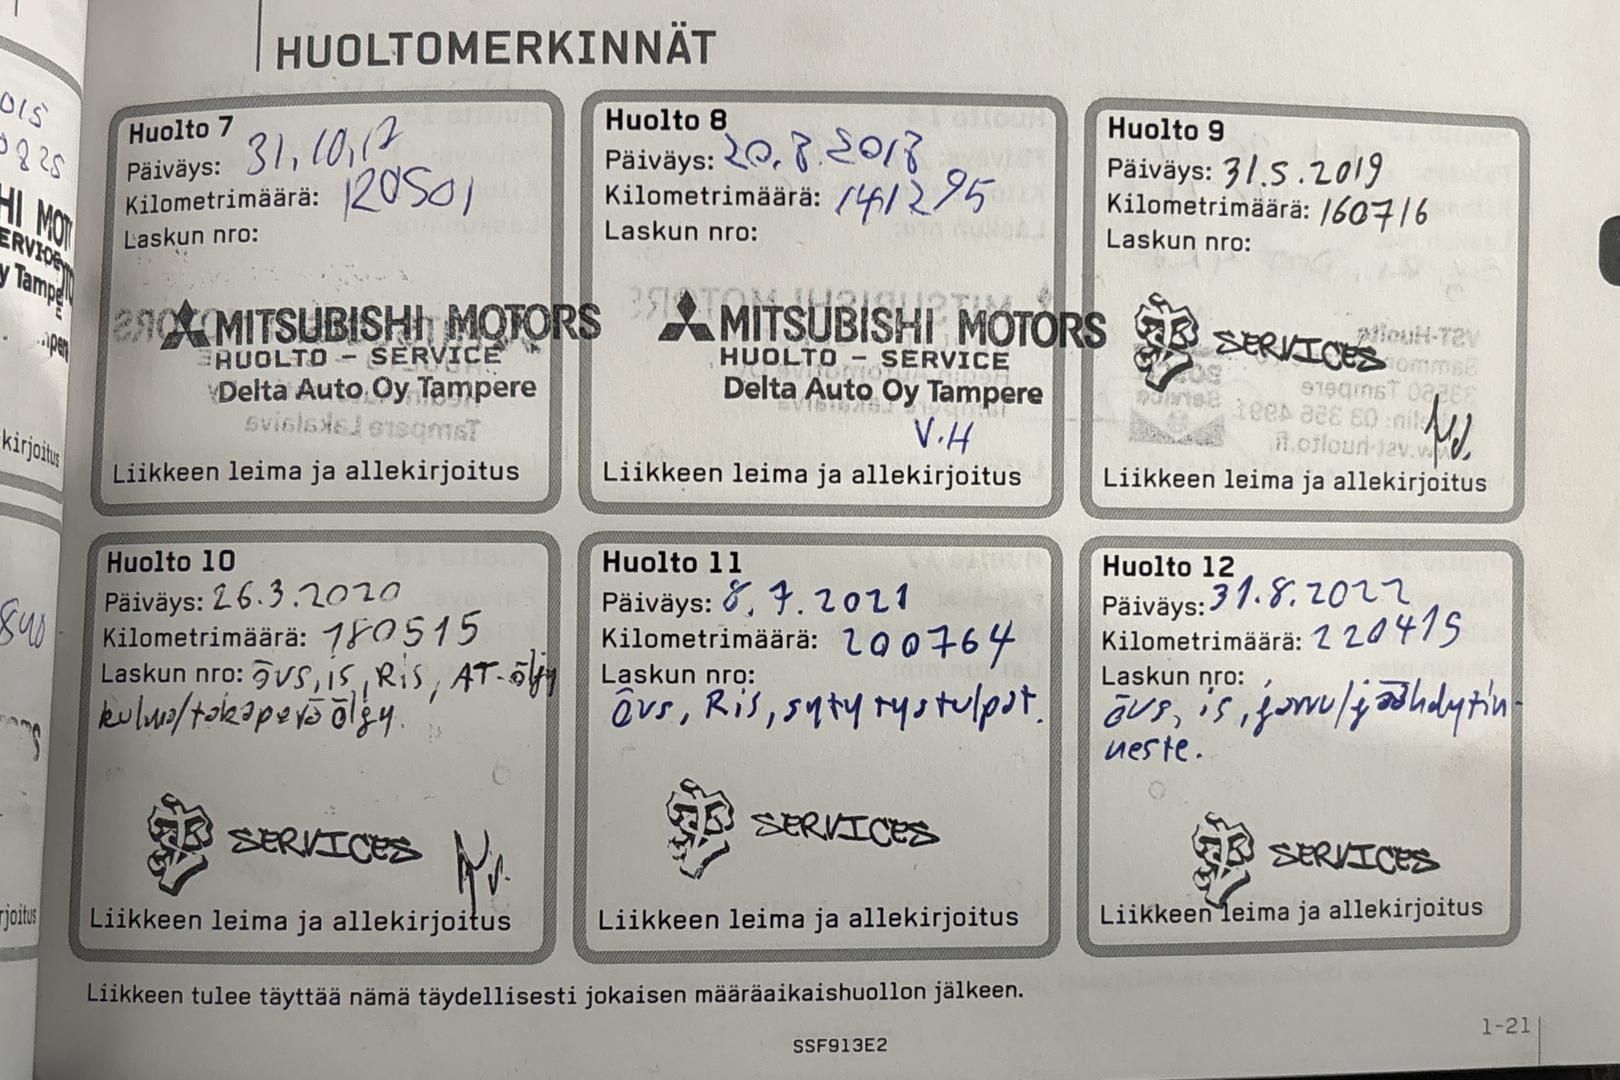 HUOLTOMERKINNÄT
Huolto 7
Päiväys: 31.10.17
Kilometrimäärä: 120501
Laskun nro:
MITSUBISHI MOTORS
HUOLTO – SERVICE
Delta Auto Oy Tampere
Liikkeen leima ja allekirjoitus
Huolto 8
Päiväys: 20.8.2018
Kilometrimäärä: 141295
Laskun nro:
MITSUBISHI MOTORS
HUOLTO – SERVICE
Delta Auto Oy Tampere
V.H
Liikkeen leima ja allekirjoitus
Huolto 9
Päiväys: 31.5.2019
Kilometrimäärä: 160716
Laskun nro:
SERVICES
Liikkeen leima ja allekirjoitus
Huolto 10
Päiväys: 26.3.2020
Kilometrimäärä: 180515
Laskun nro: övs, is, Ris, AT-öljy
kulma/takaperä öljy.
SERVICES
Liikkeen leima ja allekirjoitus
Huolto 11
Päiväys: 8.7.2021
Kilometrimäärä: 200764
Laskun nro:
övs, Ris, sytytystulpat.
SERVICES
Liikkeen leima ja allekirjoitus
Huolto 12
Päiväys: 31.8.2022
Kilometrimäärä: 220415
Laskun nro:
övs, is, jarru/jäähdytin-
neste.
SERVICES
Liikkeen leima ja allekirjoitus
Liikkeen tulee täyttää nämä täydellisesti jokaisen määräaikaishuollon jälkeen.
1-21
SSF913E2